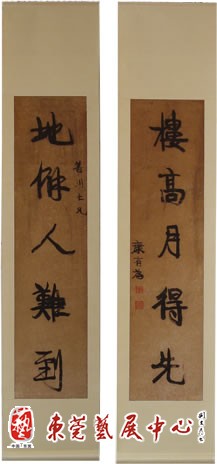 地僻人難到
樓高月得先
康有為
東莞藝展中心